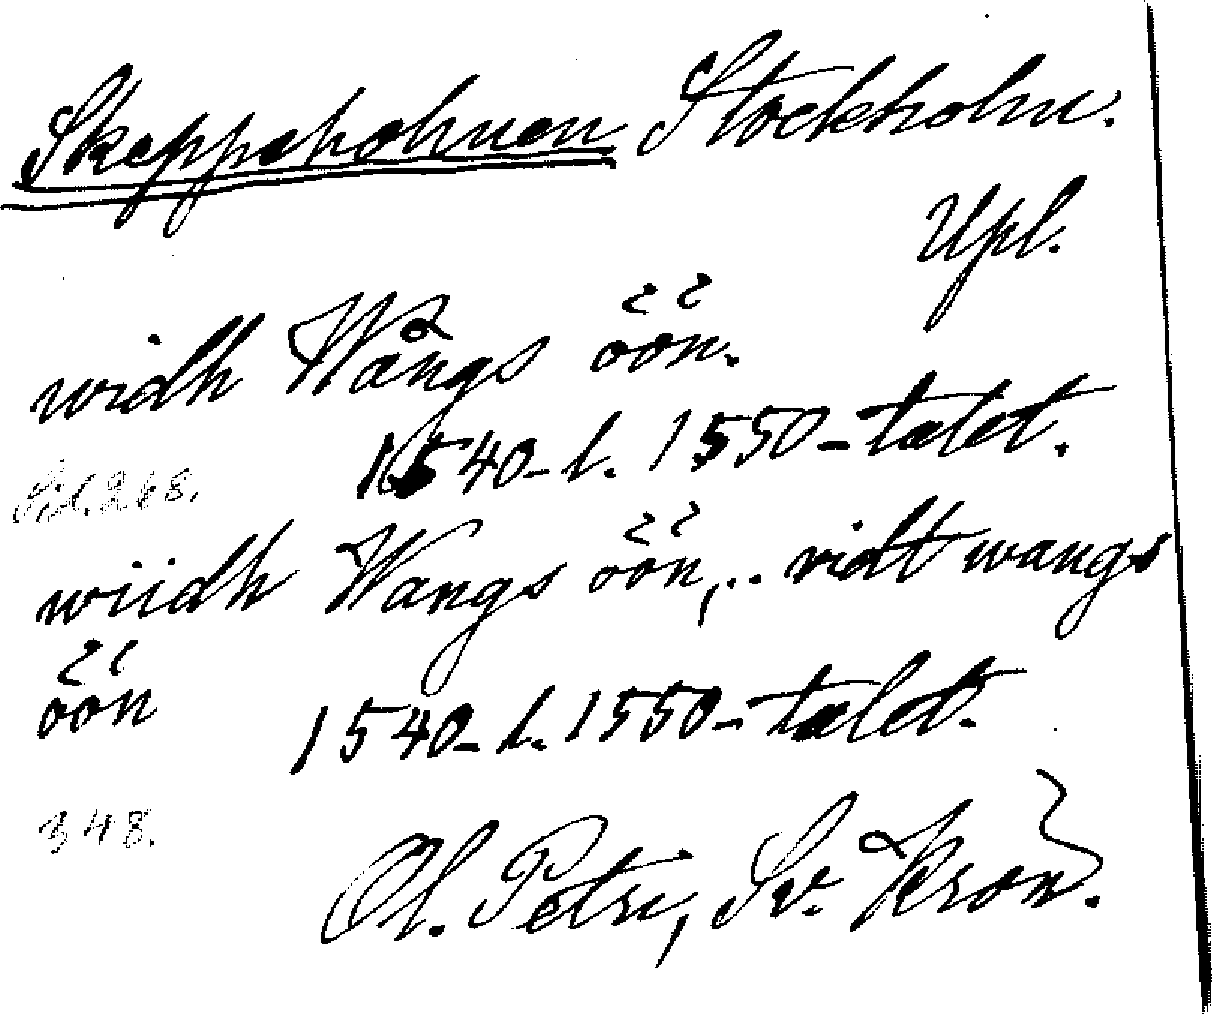 Skeppsholmen Stockholm.
Upl.
widh Wångs öön.
1540- l. 1550-talet.
Sid. 268.
wiidh Wangs öön, .. vidt wangs
öön
1540- l. 1550-talet.
348.
Ol. Petri, Sv. Krön.